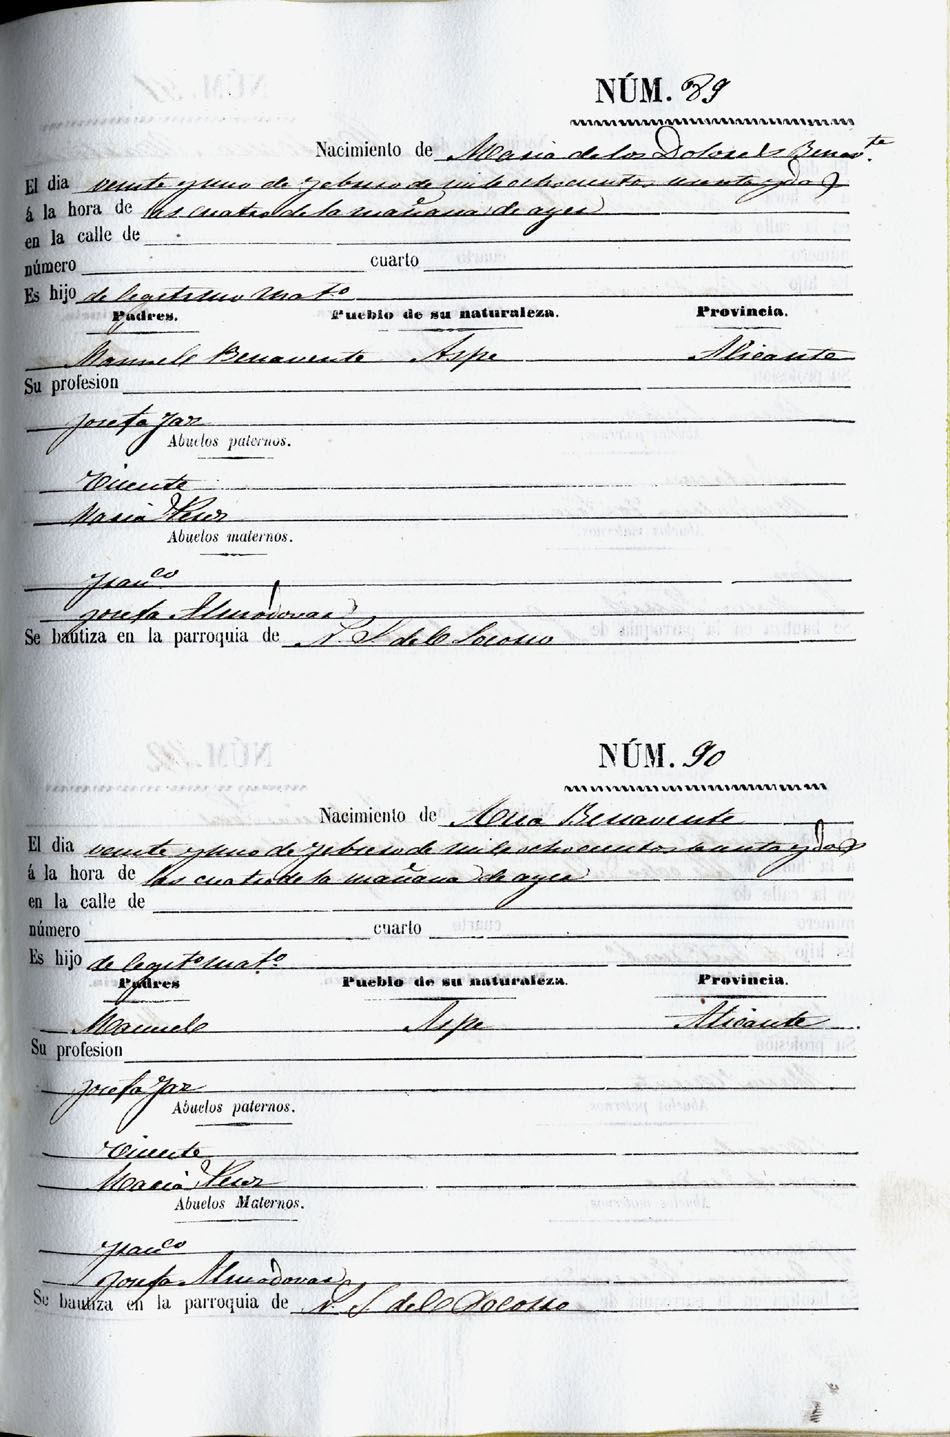 NÚM. 89
Nacimiento de Maria de los Dolores Benav.te
El dia veinte y uno de Febrero de mil ochocientos y dos
á la hora de las cuatro de la mañana de ayer
en la calle de
número cuarto
Es hijo de legitimo mat.o
Padres. Pueblo de su naturaleza. Provincia.
Manuel Benavente Aspe Alicante
Su profesion
Josefa
Abuelos paternos.
Vicente
Maria
Abuelos maternos.
Fran.co
Josefa Almodovar
Se bautiza en la parroquia de N. S. del Socorro
NÚM. 90
Nacimiento de Ana Benavente
El dia veinte y uno de Febrero de mil ochocientos y dos
á la hora de las cuatro de la mañana de ayer
en la calle de
número cuarto
Es hijo de legit.o mat.o
Padres Pueblo de su naturaleza. Provincia.
Manuel Aspe Alicante
Su profesion
Josefa
Abuelos paternos.
Vicente
Maria
Abuelos Maternos.
Fran.co
Josefa Almodovar
Se bautiza en la parroquia de N. S. del Socorro